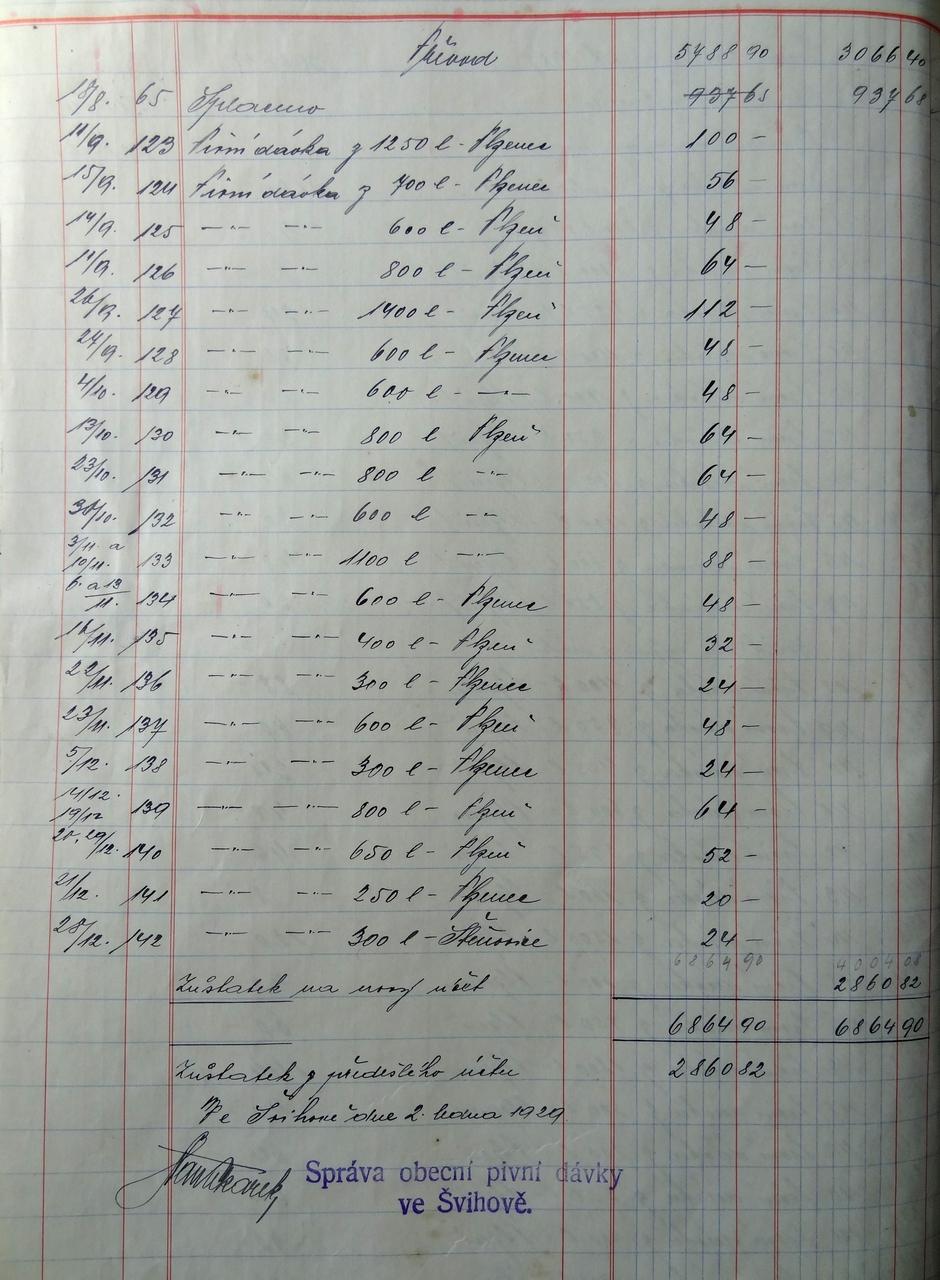 Převod 5788 90 3066 40
18/8. 65 Splaceno 937 65 937 68
11/9. 123 Pivní dávka z 1250 l - Plzenec 100 -
15/9. 124 Pivní dávka z 700 l - Plzenec 56 -
14/9. 125 —"— —"— 600 l - Plzeň 48 -
11/9. 126 —"— —"— 800 l - Plzeň 64 -
26/9. 127 —"— —"— 1400 l - Plzeň 112 -
24/9. 128 —"— —"— 600 l - Plzenec 48 -
4/10. 129 —"— —"— 600 l - —"— 48 -
13/10. 130 —"— —"— 800 l Plzeň 64 -
23/10. 131 —"— —"— 800 l —"— 64 -
30/10. 132 —"— —"— 600 l —"— 48 -
3/11. a 10/11. 133 —"— —"— 1100 l —"— 88 -
6. a 13/11. 134 —"— —"— 600 l - Plzenec 48 -
16/11. 135 —"— —"— 400 l - Plzeň 32 -
22/11. 136 —"— —"— 300 l - Plzenec 24 -
23/11. 137 —"— —"— 600 l - Plzeň 48 -
5/12. 138 —"— —"— 300 l - Plzenec 24 -
14/12. 19/12 139 —"— —"— 800 l - Plzeň 64 -
20. 29/12. 140 —"— —"— 650 l - Plzeň 52 -
21/12. 141 —"— —"— 250 l - Plzenec 20 -
28/12. 142 —"— —"— 300 l - Štěnovice 24 -
6864 90 4004 08
Zůstatek na nový účet 2860 82
6864 90 6864 90
Zůstatek z předešlého účtu 2860 82
Ve Švihově dne 2. ledna 1929
Správa obecní pivní dávky
ve Švihově.